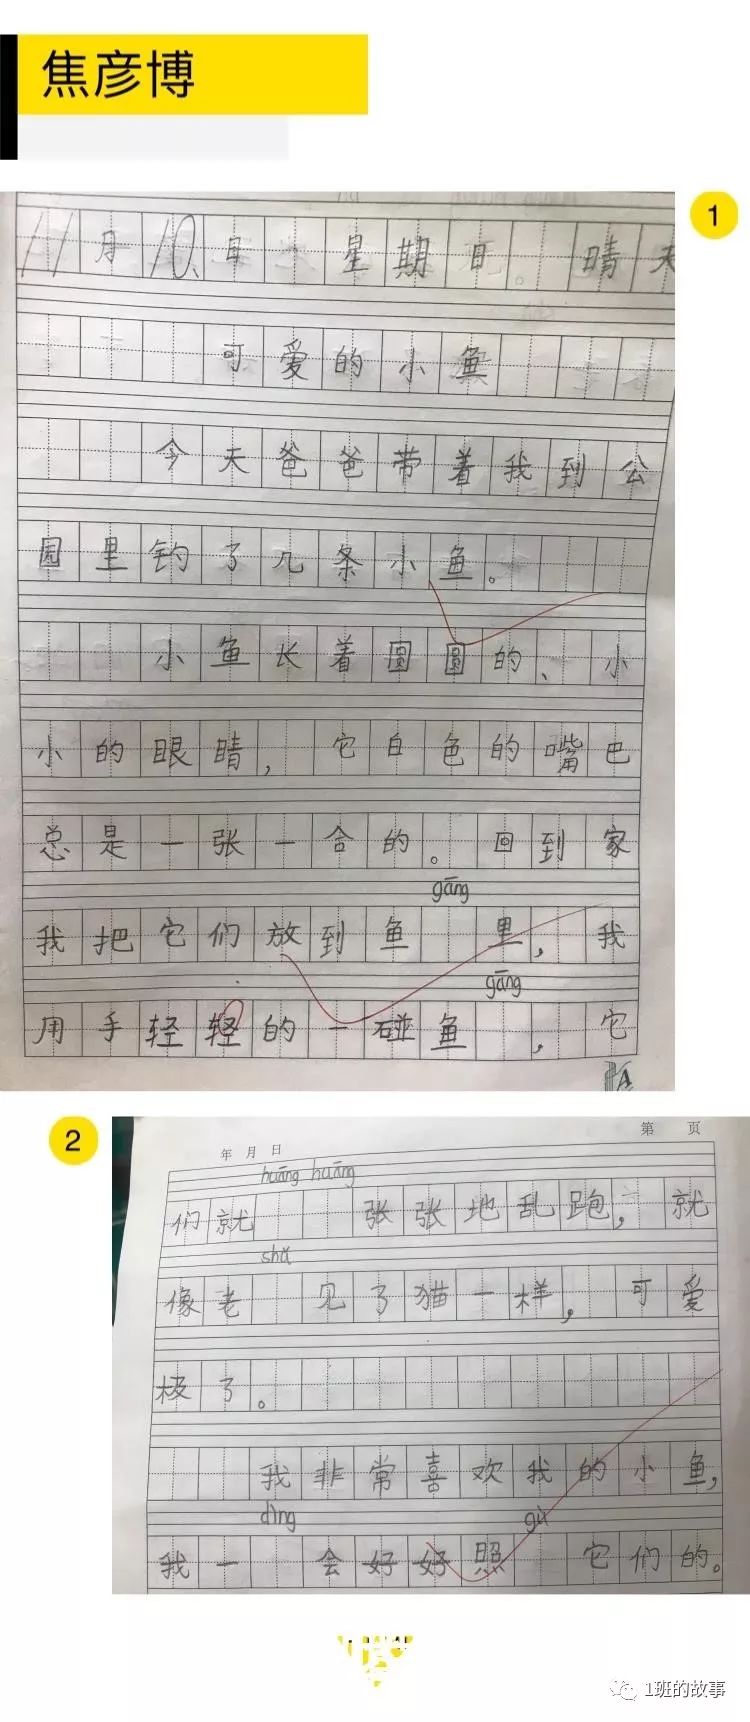 焦彦博
1
11月10日 星期日。晴天
可爱的小鱼
今天爸爸带着我到公
园里钓了几条小鱼。
小鱼长着圆圆的、小
小的眼睛,它白色的嘴巴
总是一张一合的。回到家
gāng
我把它们放到鱼 里,我
gāng
用手轻轻的一碰鱼 ,它
2
第 页
年 月 日
huāng huāng
们就 张张地乱跑,就
shǔ
像老 见了猫一样,可爱
极了。
我非常喜欢我的小鱼,
dìng gù
我一 会好好照 它们的。
1班的故事